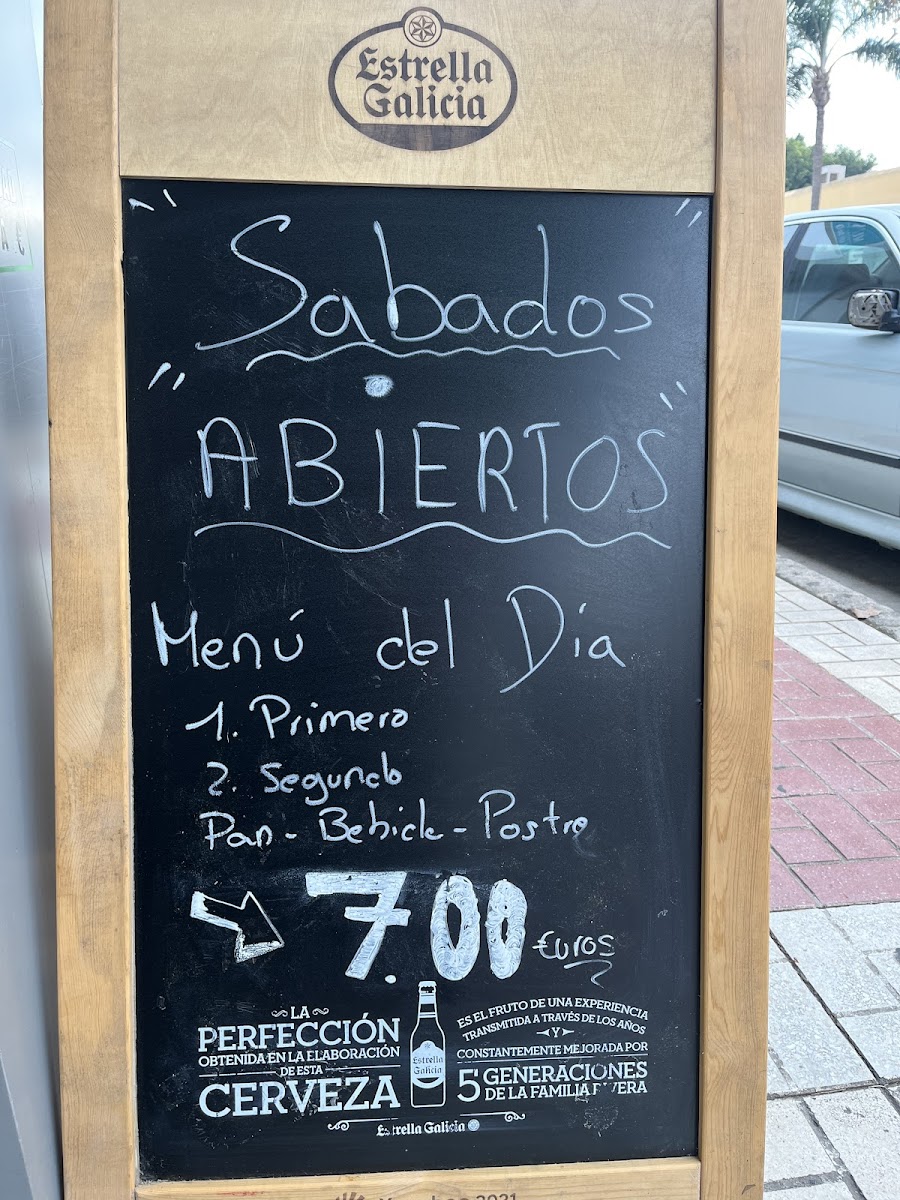 Estrella
Galicia
Sabados
ABIERTOS
Menú del Día
1. Primero
2. Segundo
Pan - Bebida - Postre
7.00 Euros
LA
PERFECCIÓN
OBTENIDA EN LA ELABORACIÓN
DE ESTA
CERVEZA
Estrella
Galicia
ES EL FRUTO DE UNA EXPERIENCIA
TRANSMITIDA A TRAVÉS DE LOS AÑOS
Y
CONSTANTEMENTE MEJORADA POR
5 GENERACIONES
DE LA FAMILIA
Estrella Galicia
2021